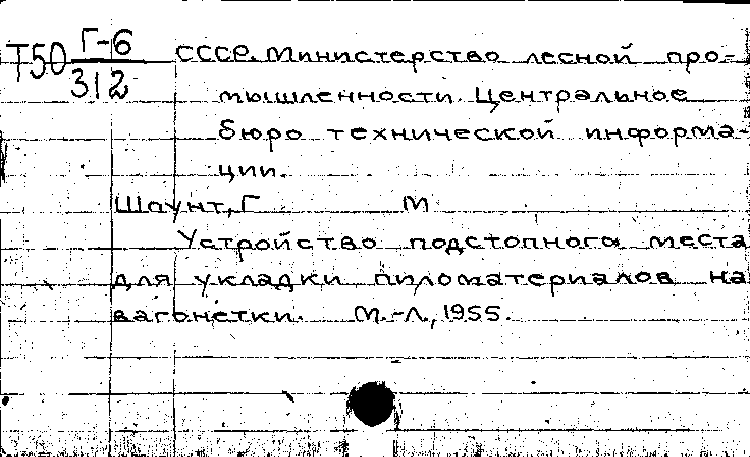 Т50 Г-6
312
СССР. Министерство лесной про-
мышленности. Центральное
бюро технической информа-
ции.
Шаунт, Г М
Устройство подстопного места
для укладки пиломатериалов на
вагонетки. М.-Л., 1955.